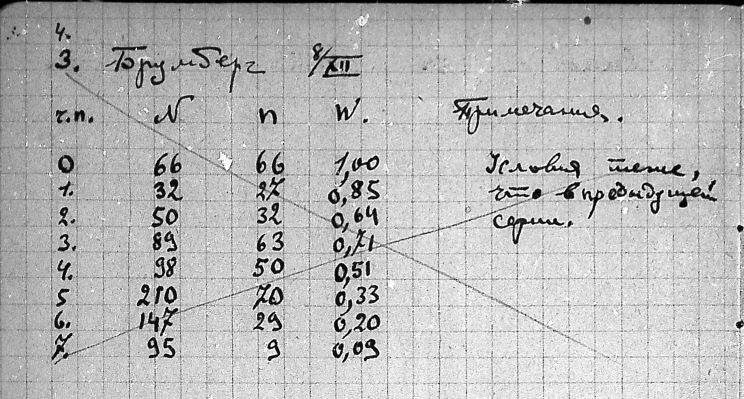 4.
3. Брумберг 8/XII
г.п. N n W. Примечания.
0 66 66 1,00 Условия теже,
1. 32 27 0,85 что в предыдущей
2. 50 32 0,64 серии.
3. 89 63 0,71
4. 98 50 0,51
5 210 70 0,33
6. 147 29 0,20
7. 95 9 0,09